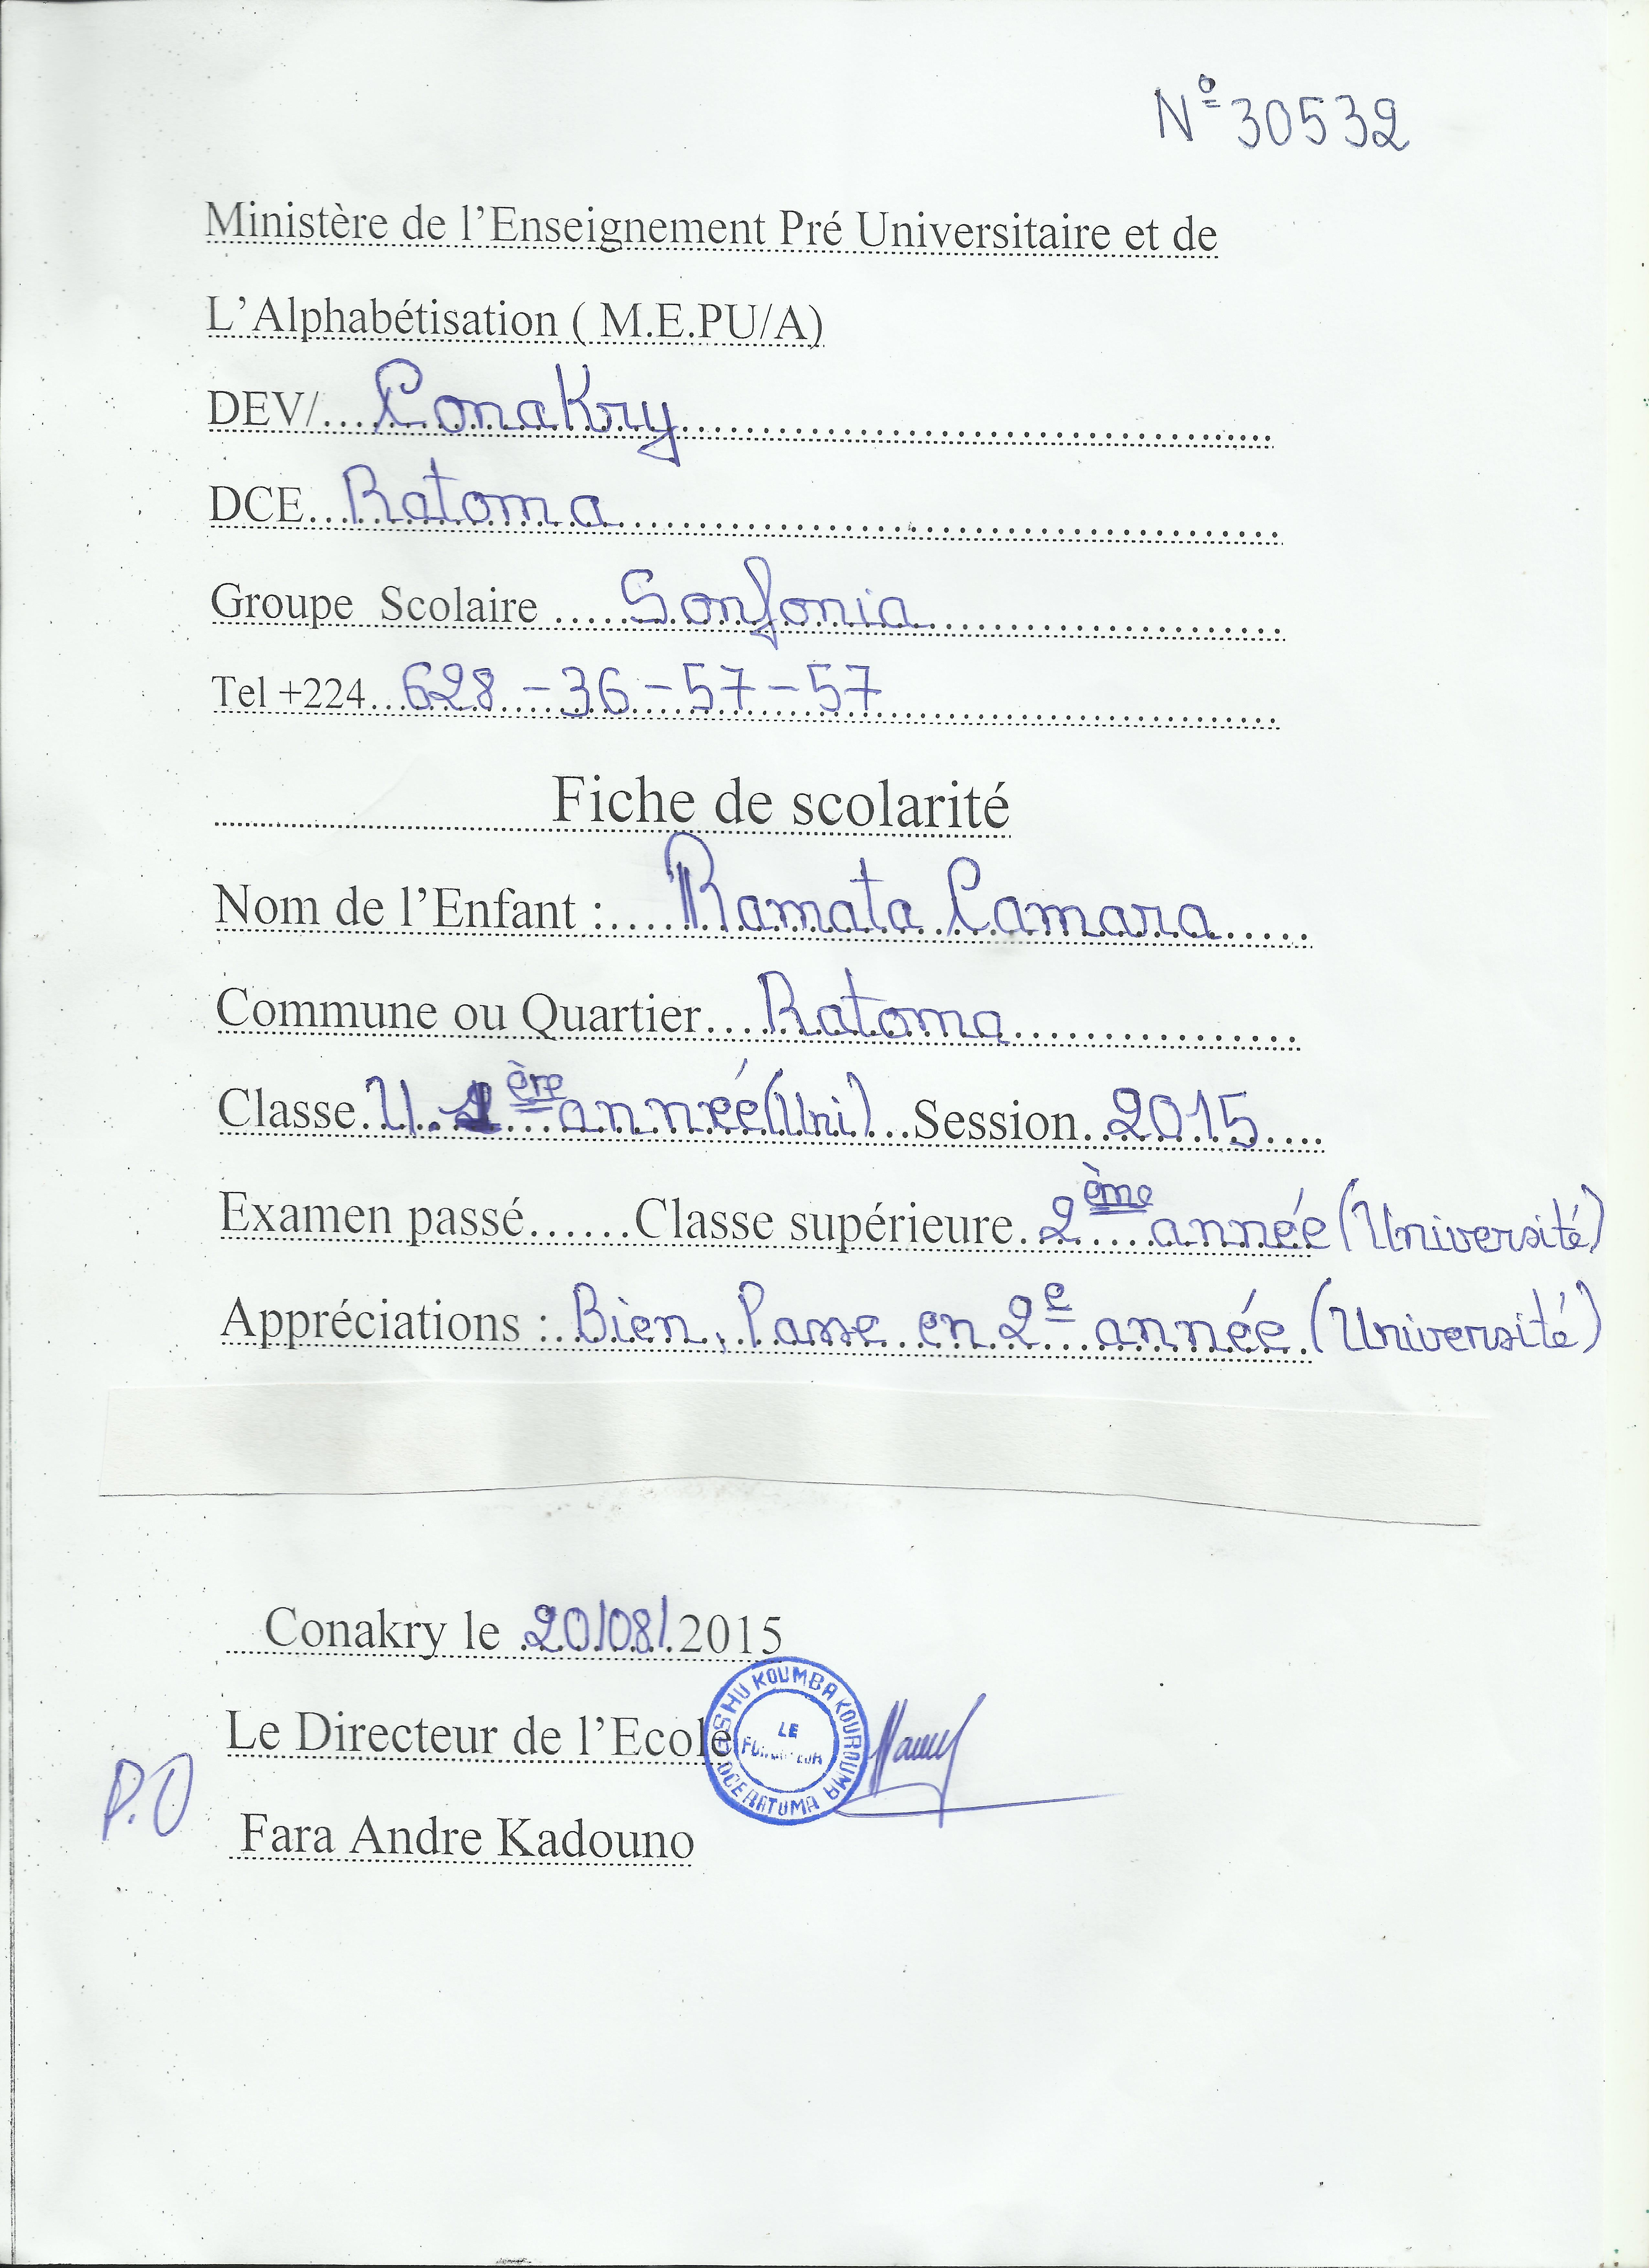 N° 30532
Ministère de l'Enseignement Pré Universitaire et de
L'Alphabétisation ( M.E.PU/A)
DEV/....Conakry
DCE...Ratoma
Groupe Scolaire .....Sonfonia
Tel +224...628-36-57-57
Fiche de scolarité
Nom de l'Enfant :.....Ramata Camara.....
Commune ou Quartier....Ratoma
Classe. U. 1ère année (Uni)...Session. 2015....
Examen passé......Classe supérieure. 2ème année (Université)
Appréciations :. Bien, Passe en 2e année (Université)
Conakry le 20/08/.2015
Le Directeur de l'Ecole
KOUMBA KOUROUMA
LE
DCE RATOMA
P.O
Fara Andre Kadouno